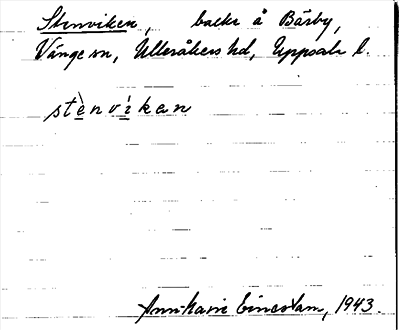 Stenviken, backe å Bärby,
Vänge sn, Ulleråkers hd, Uppsala l.
stè̱nví̱kan
Ann-Marie Einestam, 1943.